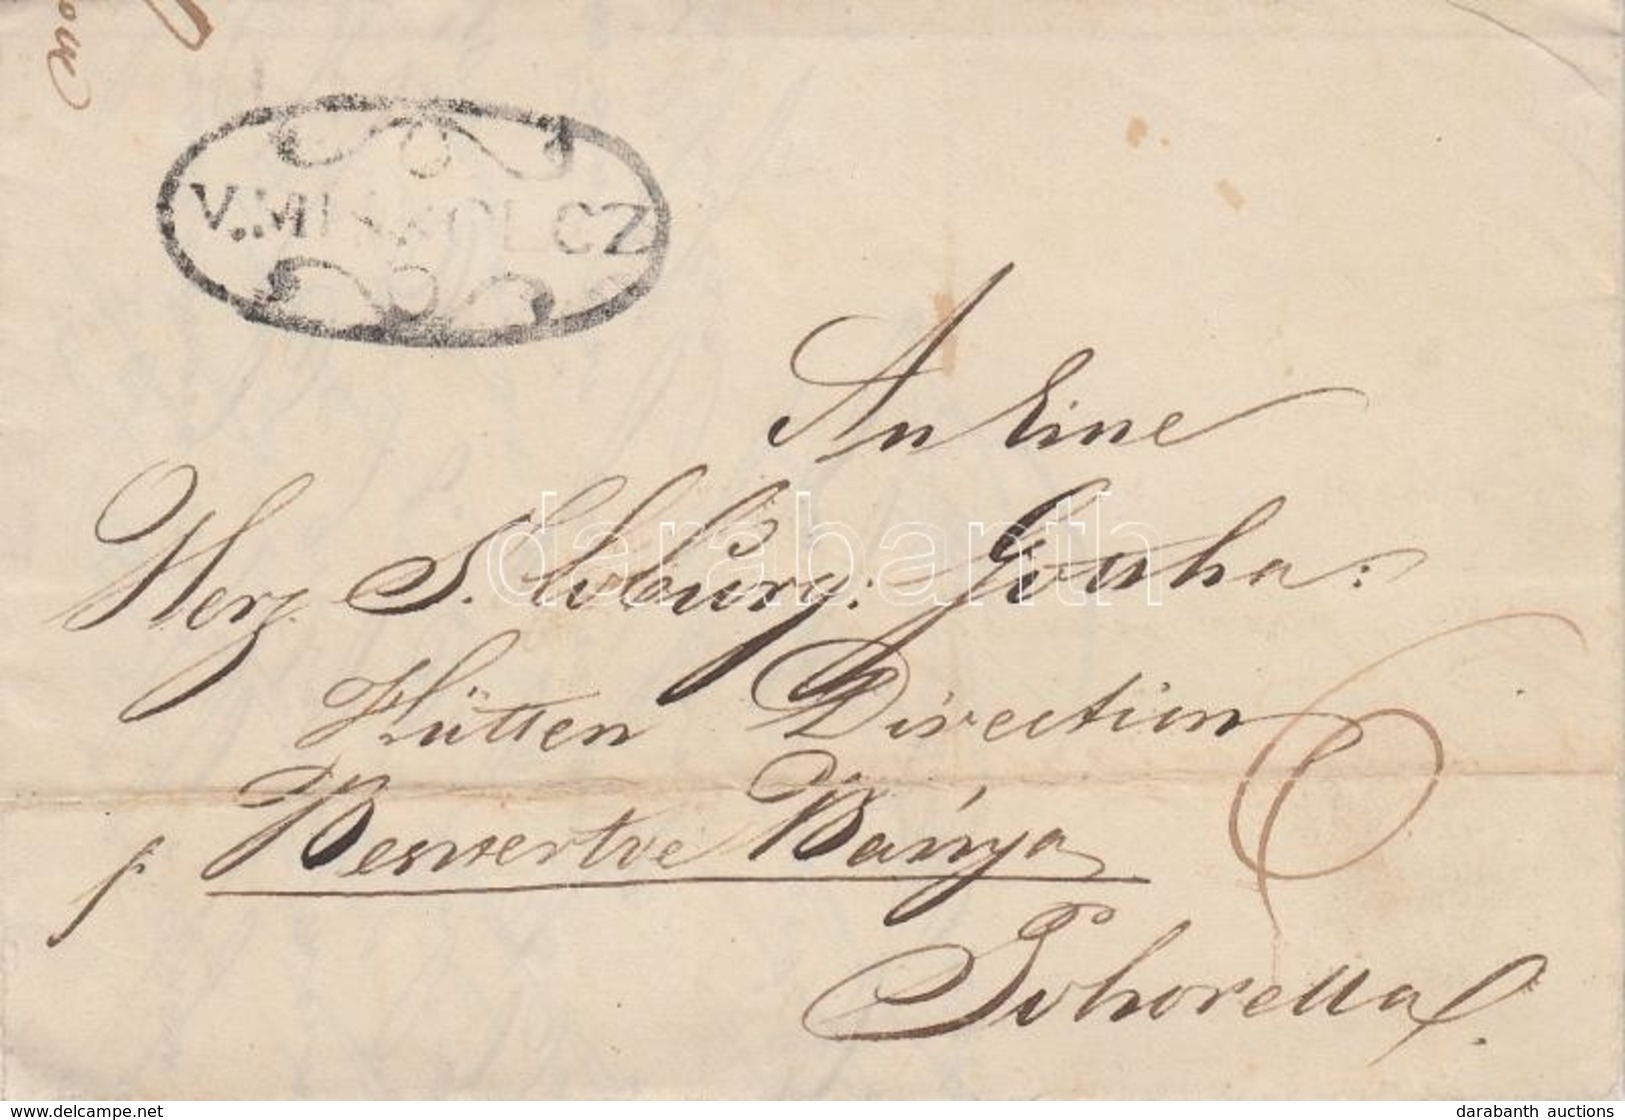 V. MISKOLCZ
An Eine
Herz. S. Coburg: Gottha:
Hütten Direction
6
p. Beswertve Bánya
Pohorella
darabanth
delcampe.net
darabanth auctions